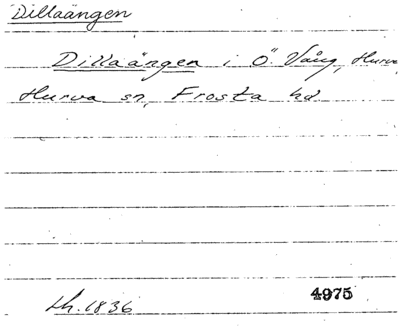 Dillaängen
Dillaängen i Ö. Vång, Hurva,
Hurva sn, Frosta hd
Lh. 1836
4975